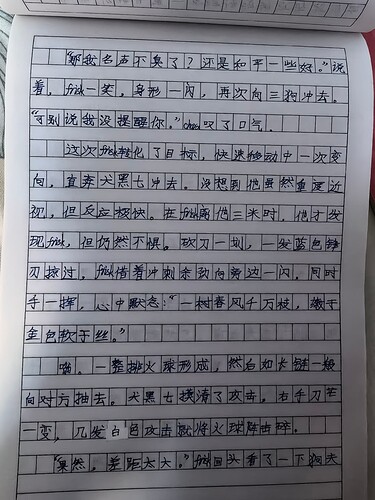 "那我名声不臭了？还是和平一些好。"说
着，frisk一笑，身形一闪，再次向三狗冲去。
"可别说我没提醒你。"chara叹了口气。
这次frisk转化了目标，快速移动中一次变
向，直奔犬黑七冲去。没想到他虽然重度近
视，但反应极快。在frisk离他三米时，他才发
现frisk，但仍然不惧。砍刀一划，一发蓝色锋
刃掠过，frisk借着冲刺余劲向旁边一闪，同时
手一挥，心中默念："一树春风千万枝，嫩于
金色软于丝。"
啪。一整排火球形成，然后如长链一般
向对方抽去。犬黑七摸清了攻击。右手刀芒
一变，几发白色攻击就将火球阵击碎。
"果然，差距太大。"frisk回头看了一下狗夫